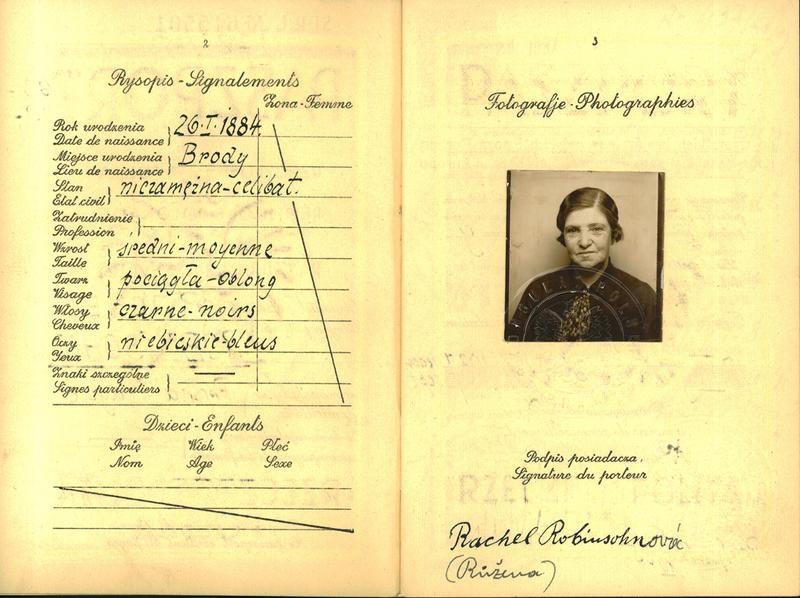 2
Rysopis - Signalements
Żona - Femme
Rok urodzenia
Date de naissance
26.I.1884.
Miejsce urodzenia
Lieu de naissance
Brody
Stan
Etat civil
niezamężna-celibat.
Zatrudnienie
Profession
Wzrost
Taille
średni-moyenne
Twarz
Visage
pociągła-oblong
Włosy
Cheveux
czarne-noirs
Oczy
Yeux
niebieskie-bleus
Znaki szczególne
Signes particuliers
Dzieci - Enfants
Imię Wiek Płeć
Nom Age Sexe
3
Fotografje - Photographies
Podpis posiadacza.
Signature du porteur
Rachel Robinsohnová
(Růžena)